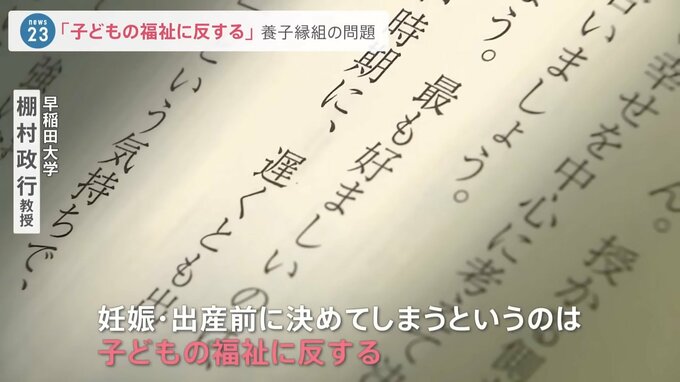 news
23
「子どもの福祉に反する」養子縁組の問題
早稲田大学
棚村政行 教授
ん。授か
幸せを中心に考えて
いましょう。
う。最も好ましいの
時期に、遅くとも出
という気持ちで、
妊娠・出産前に決めてしまうというのは
子どもの福祉に反する